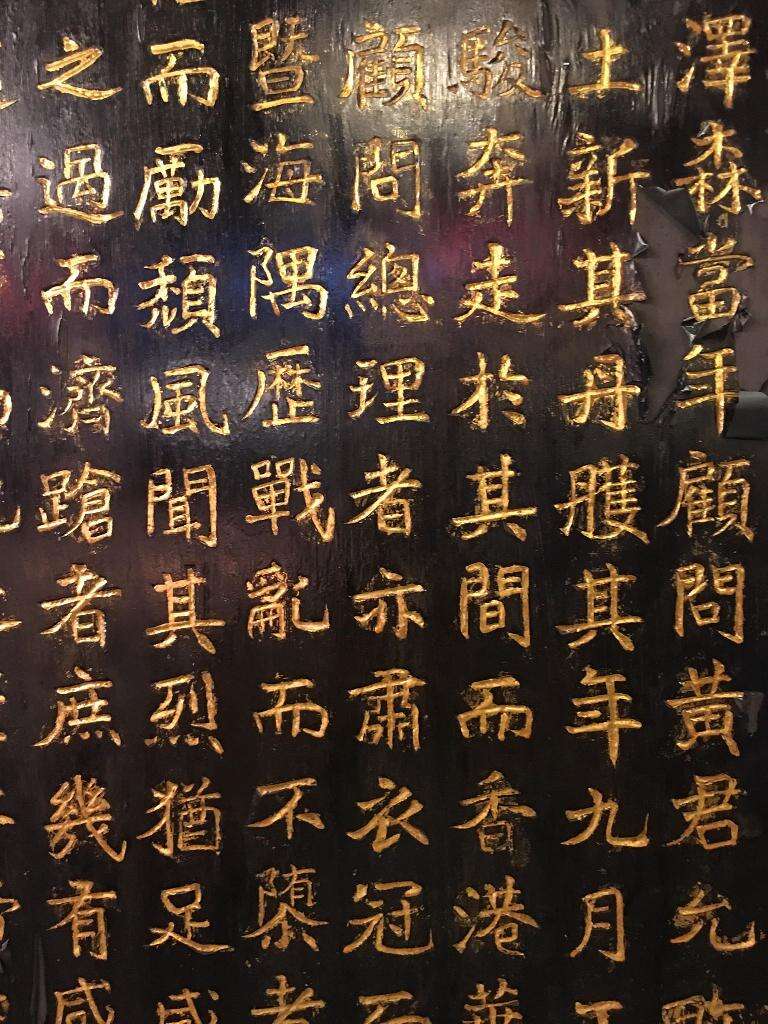 澤森當年顧問黃君允
土新其丹艧其年九月
駿奔走於其間而香港華
顧問總理者亦肅衣冠而
暨海隅歷戰亂而不者
而勵頹風聞其烈猶足
之過而濟蹌者庶幾有